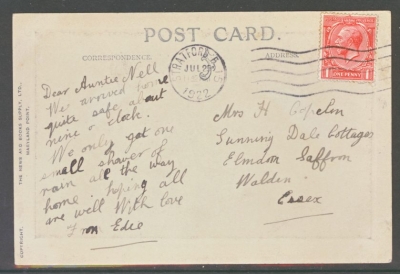 POST CARD.
CORRESPONDENCE.
ADDRESS.
Dear Auntie Nell
We arrived home
quite safe about
nine o clock.
We only got one
small shower of
rain all the way
home. hoping all
are well With love
From Edie
Mrs H
Sunning Dale Cottages
Elmdon Saffron
Walden
Essex
STRATFORD
JUL
1922
POSTAGE
ONE PENNY
THE NEWS AND BOOKS SUPPLY, LTD.
MARYLAND POINT.
COPYRIGHT.